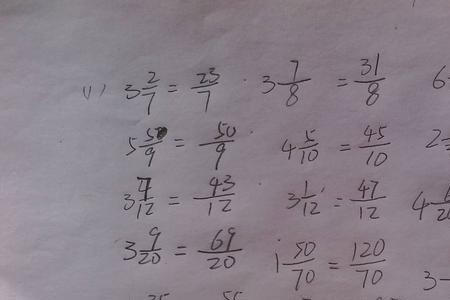 (1) 3 2/7 = 23/7 3 7/8 = 31/8 6
5 5/9 = 50/9 4 5/10 = 45/10 2=
3 7/12 = 43/12 3 1/12 = 47/12 4
3 9/20 = 69/20 1 50/70 = 120/70 3-